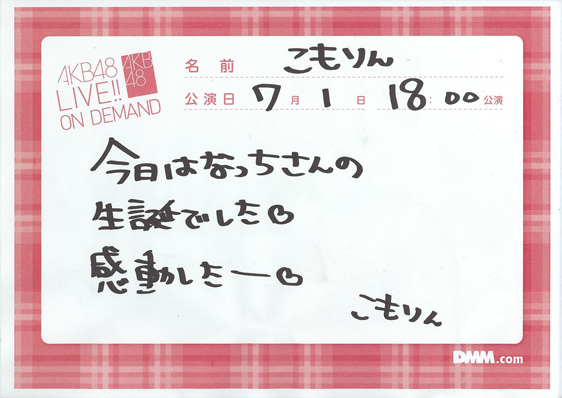 AKB48
LIVE!!
ON DEMAND
AKB
48
名前 こもりん
公演日 7月1日 18:00公演
今日はなっちさんの
生誕でした♡
感動したー♡
こもりん
DMM.com